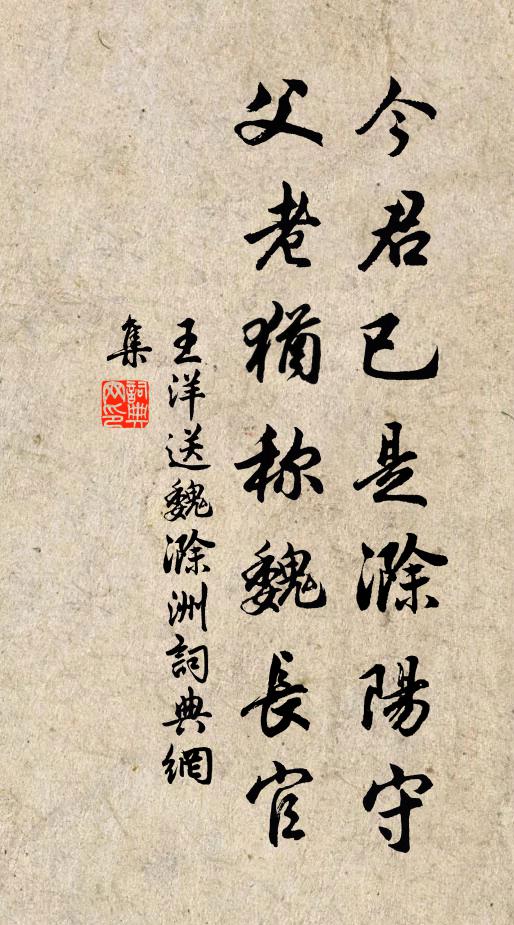 今君已是滁陽守
父老猶称魏長官
王洋送魏滁洲詞典網
集
詞典
网印